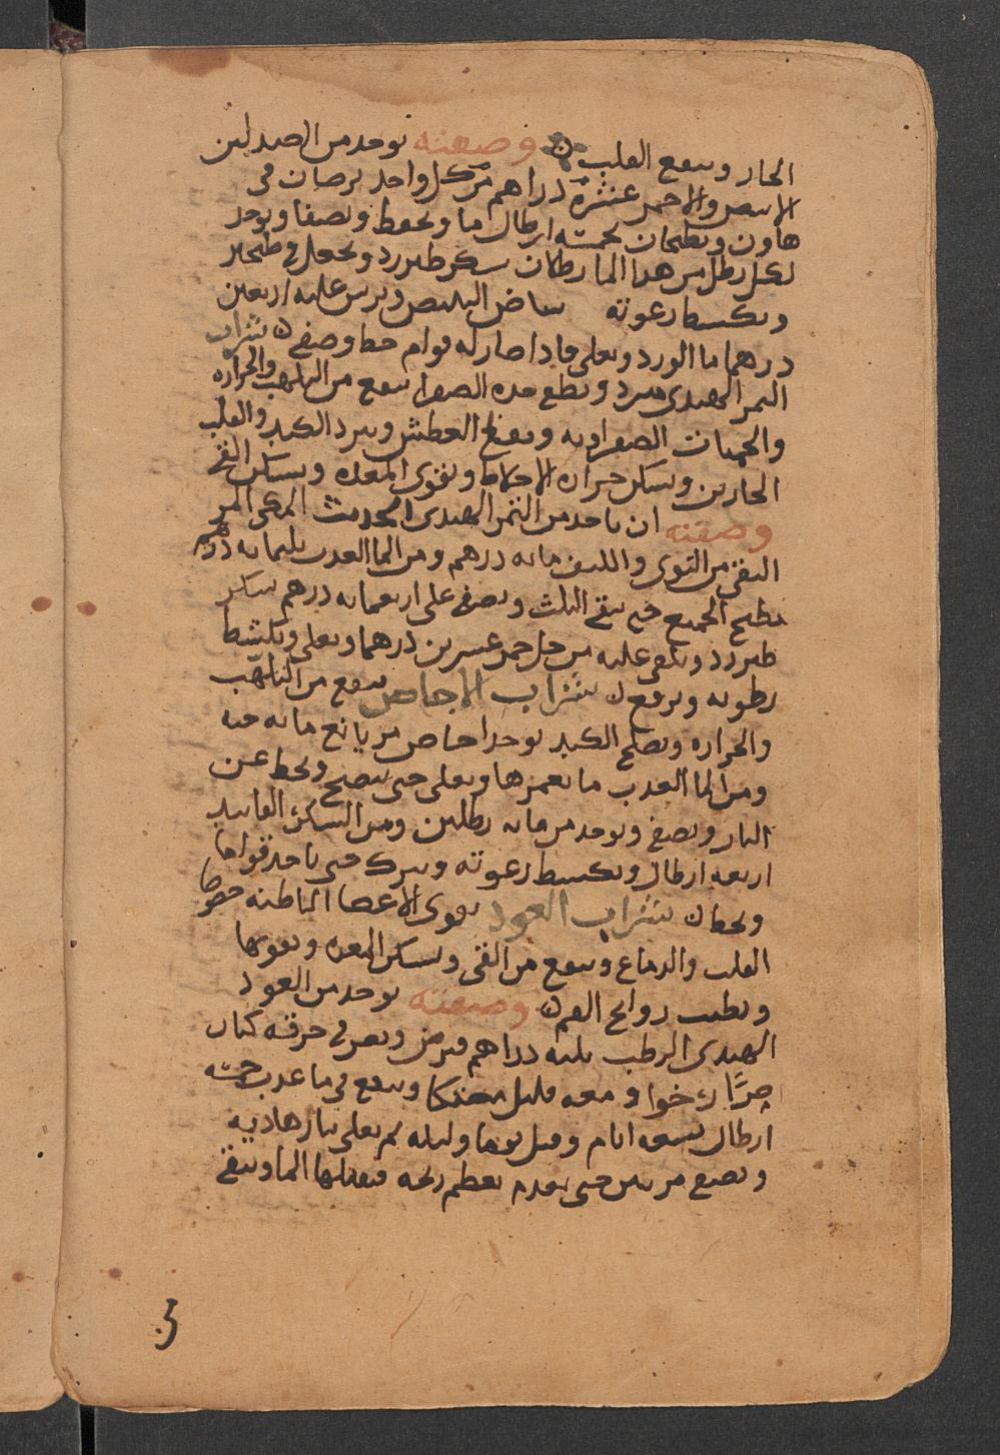 الحار وينفع القلب ن وصفته يوخد من الصندلين
الابيض والاحمر عشرة دراهم من كل واحد يرضان في
هاون ويطبخان بخمسة ارطال ما ويحفظ ونصفا ويوخد
لكل رطل من هدا الما رطلان سكر طبرزد ويجعل في طنجير
ويكشط رغوته بياض البيض ويرش عليه اربعين
درهما ما الورد ويغلى فادا صار له قوام حط وصفى ن شراب
التمر الهندى مبرد ويطفى حدة الصفرا ينفع من التلهب والحراره
والحميات الصفراويه ويقطع العطش ويبرد الكبد والقلب
الحارين ويسكن حرارة الاخلاط ويقوى المعده ويسكن القى
وصفته ان ياخد من التمر الهندى الحديث المز
النقى من النوى والليف مايه درهم ومن الما العدب ثلثمايه درهم
يطبخ الجميع حتى يبقى الثلث ويصفى على اربعمايه درهم سكر
طبرزد ويلقى عليه من خل خمر عشرين درهما ويغلى ويكشط
رطوبه ويرفع ن شراب الاجاص ينفع من التلهب
والحراره ويصلح الكبد يوخد اجاص مز يانع مايه حبه
ومن الما العدب ما يغمرها ويغلى حتى ينضج ويحط عن
النار ويصفى ويوخد من مايه رطلين ومن السكر الفانيد
اربعه ارطال ويكشط رغوته ويترك حتى ياخد قواما
ويحط ن شراب العود يقوى الاعضا الباطنه خصوصا
القلب والدماغ وينفع من القى ويسكن المعده ويقويها
ويطيب روايح الفم ن وصفته يوخد من العود
الهندى الرطب ثلثه دراهم فيرض ويصر فى خرقه كتان
صرًّا رخوا ومعه قليل مصتكا وينقع فى ما عدب خمسه
ارطال تسعه ايام وقيل يوما وليله ثم يغلى بنار هاديه
ويصفى مرتين حتى يعظم ريحه الما ويبقى